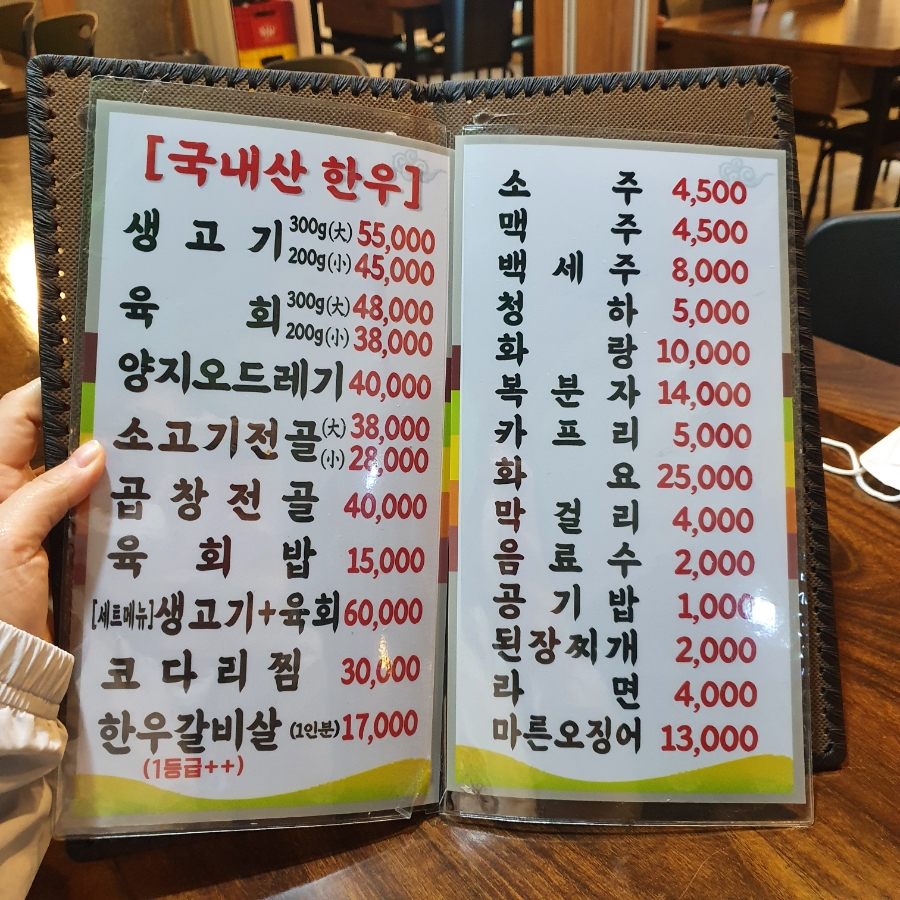 [국내산 한우]
생고기 300g(大) 55,000
200g(小) 45,000
육회 300g(大) 48,000
200g(小) 38,000
양지오드레기 40,000
소고기전골 (大) 38,000
(小) 28,000
곱창전골 40,000
육회밥 15,000
[세트메뉴]생고기+육회 60,000
코다리찜 30,000
한우갈비살 (1인분) 17,000
(1등급++)
소주 4,500
맥주 4,500
백세주 8,000
청하 5,000
화랑 10,000
복분자 14,000
카프리 5,000
화요 25,000
막걸리 4,000
음료수 2,000
공기밥 1,000
된장찌개 2,000
라면 4,000
마른오징어 13,000